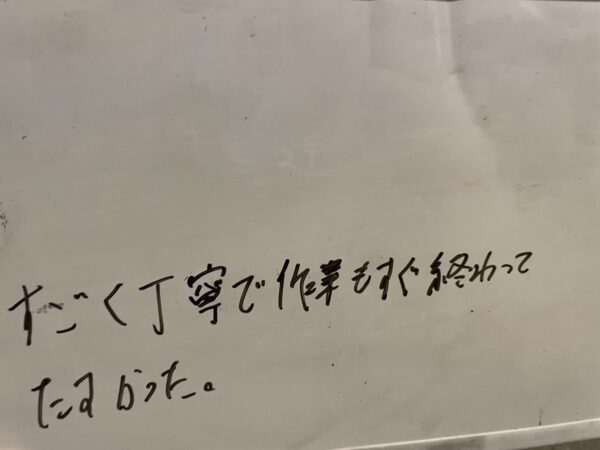 すごく丁寧で作業もすぐ終わって
たすかった。